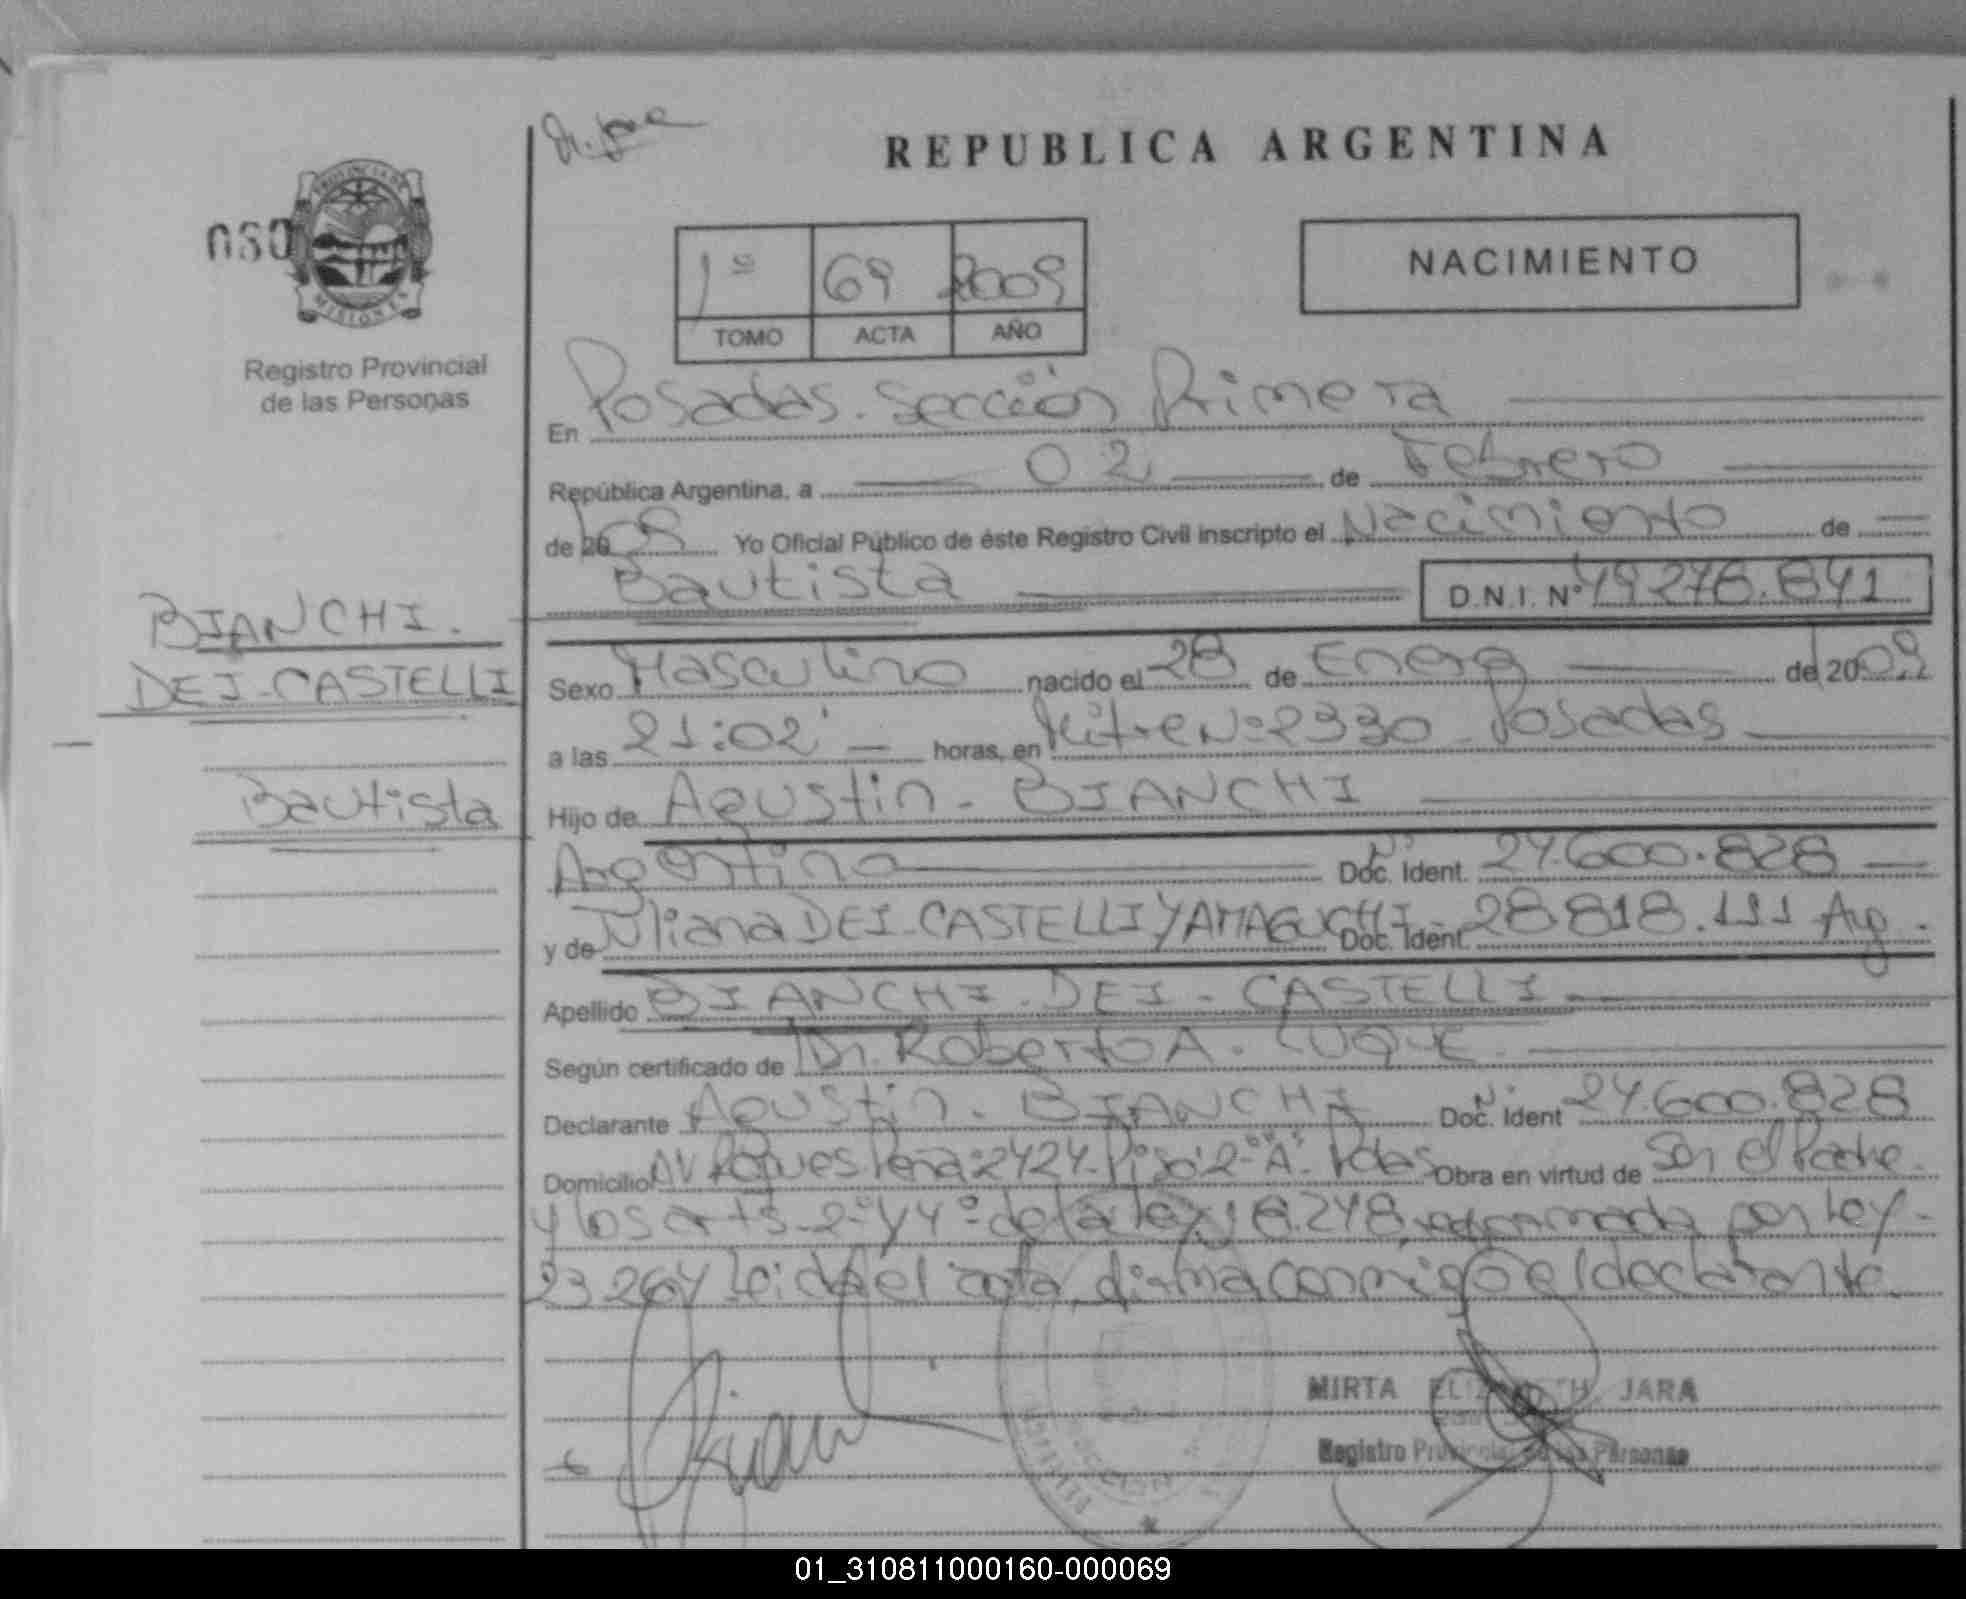 M. Jara
REPUBLICA ARGENTINA
PROVINCIA DE
MISIONES
060
1º 69 2009
TOMO ACTA AÑO
NACIMIENTO
Registro Provincial
de las Personas
En Posadas. Sección Primera
República Argentina, a 02 de Febrero
de 2009 Yo Oficial Público de éste Registro Civil inscripto el Nacimiento de
Bautista D.N.I. Nº 49276.841
BIANCHI.
DEI-CASTELLI
Bautista
Sexo Masculino nacido el 28 de Enero de 2009
a las 21:02 horas, en Mitre Nº 2330 Posadas
Hijo de Agustin - BIANCHI
Argentino Doc. Ident. Nº 24.600.828
y de Juliana DEI-CASTELLI YAMAGUCHI - Doc. Ident. 28 818.111 Arg.
Apellido BIANCHI - DEI - CASTELLI
Según certificado de Dr. Roberto A. LUQUE
Declarante Agustin - BIANCHI Doc. Ident Nº 24.600.828
Domicilio AV Roques Peña 2424 Piso 2º "A" Pdas Obra en virtud de Ser el Padre
y los arts. 2º y 4º de la ley 18.248 reformada por ley -
23 264 Leida el acta, firma conmigo el declarante
MIRTA ELIZABETH JARA
Registro Provincial de las Personas
01_310811000160-000069